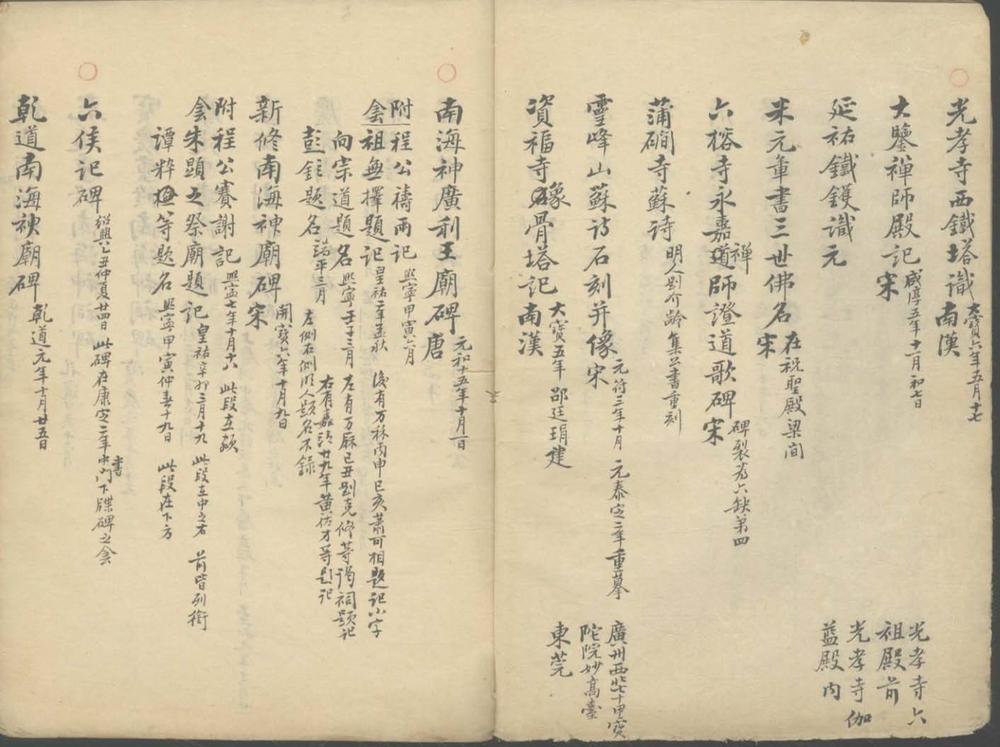 光孝寺西鐵塔識南漢 大寶六年五月十七
大鑒禪師殿記宋 咸淳五年十一月初七日 光孝寺六祖殿前
延祐鐵鑊識元 光孝寺伽藍殿內
米元章書三世佛名宋 在祝聖殿梁間
六榕寺永嘉禪道師證道歌碑宋 碑裂為六缺第四
蒲磵寺蘇詩 明人別介齡集蘇書重刻
靈峰山蘇詩石刻并像宋 元符三年十月 元泰定二年重摹 廣州西北七十里寶陀院妙高臺
資福寺像骨塔記南漢 大寶五年 邵廷琄建 東莞
南海神廣利王廟碑唐 元和十五年十月一日
附程公禱雨記 熙寧甲寅六月
侌祖無擇題記 皇祐二年孟秋 後有万林丙申已亥蕭可相題記小字
向宗道題名 熙寧壬子三月 左有万厤己丑別克修等謁祠題記
彭鉉題名 三月 右有嘉靖廿九年黃佐才等題記
左側右側明人題名不錄
新修南海神廟碑宋 開寶六年十月九日
附程公賽謝記 熙寧七年十月十六 此段在額
侌朱顯之祭廟題記 皇祐辛卯三月十九 此段在中之右 前皆列銜
譚粹等題名 熙寧甲寅仲春十九日 此段在下方
六侯記碑 紹興乙丑仲夏廿四日 此碑在康定二年中書門下牒碑之侌
乾道南海神廟碑 乾道元年十月廿五日